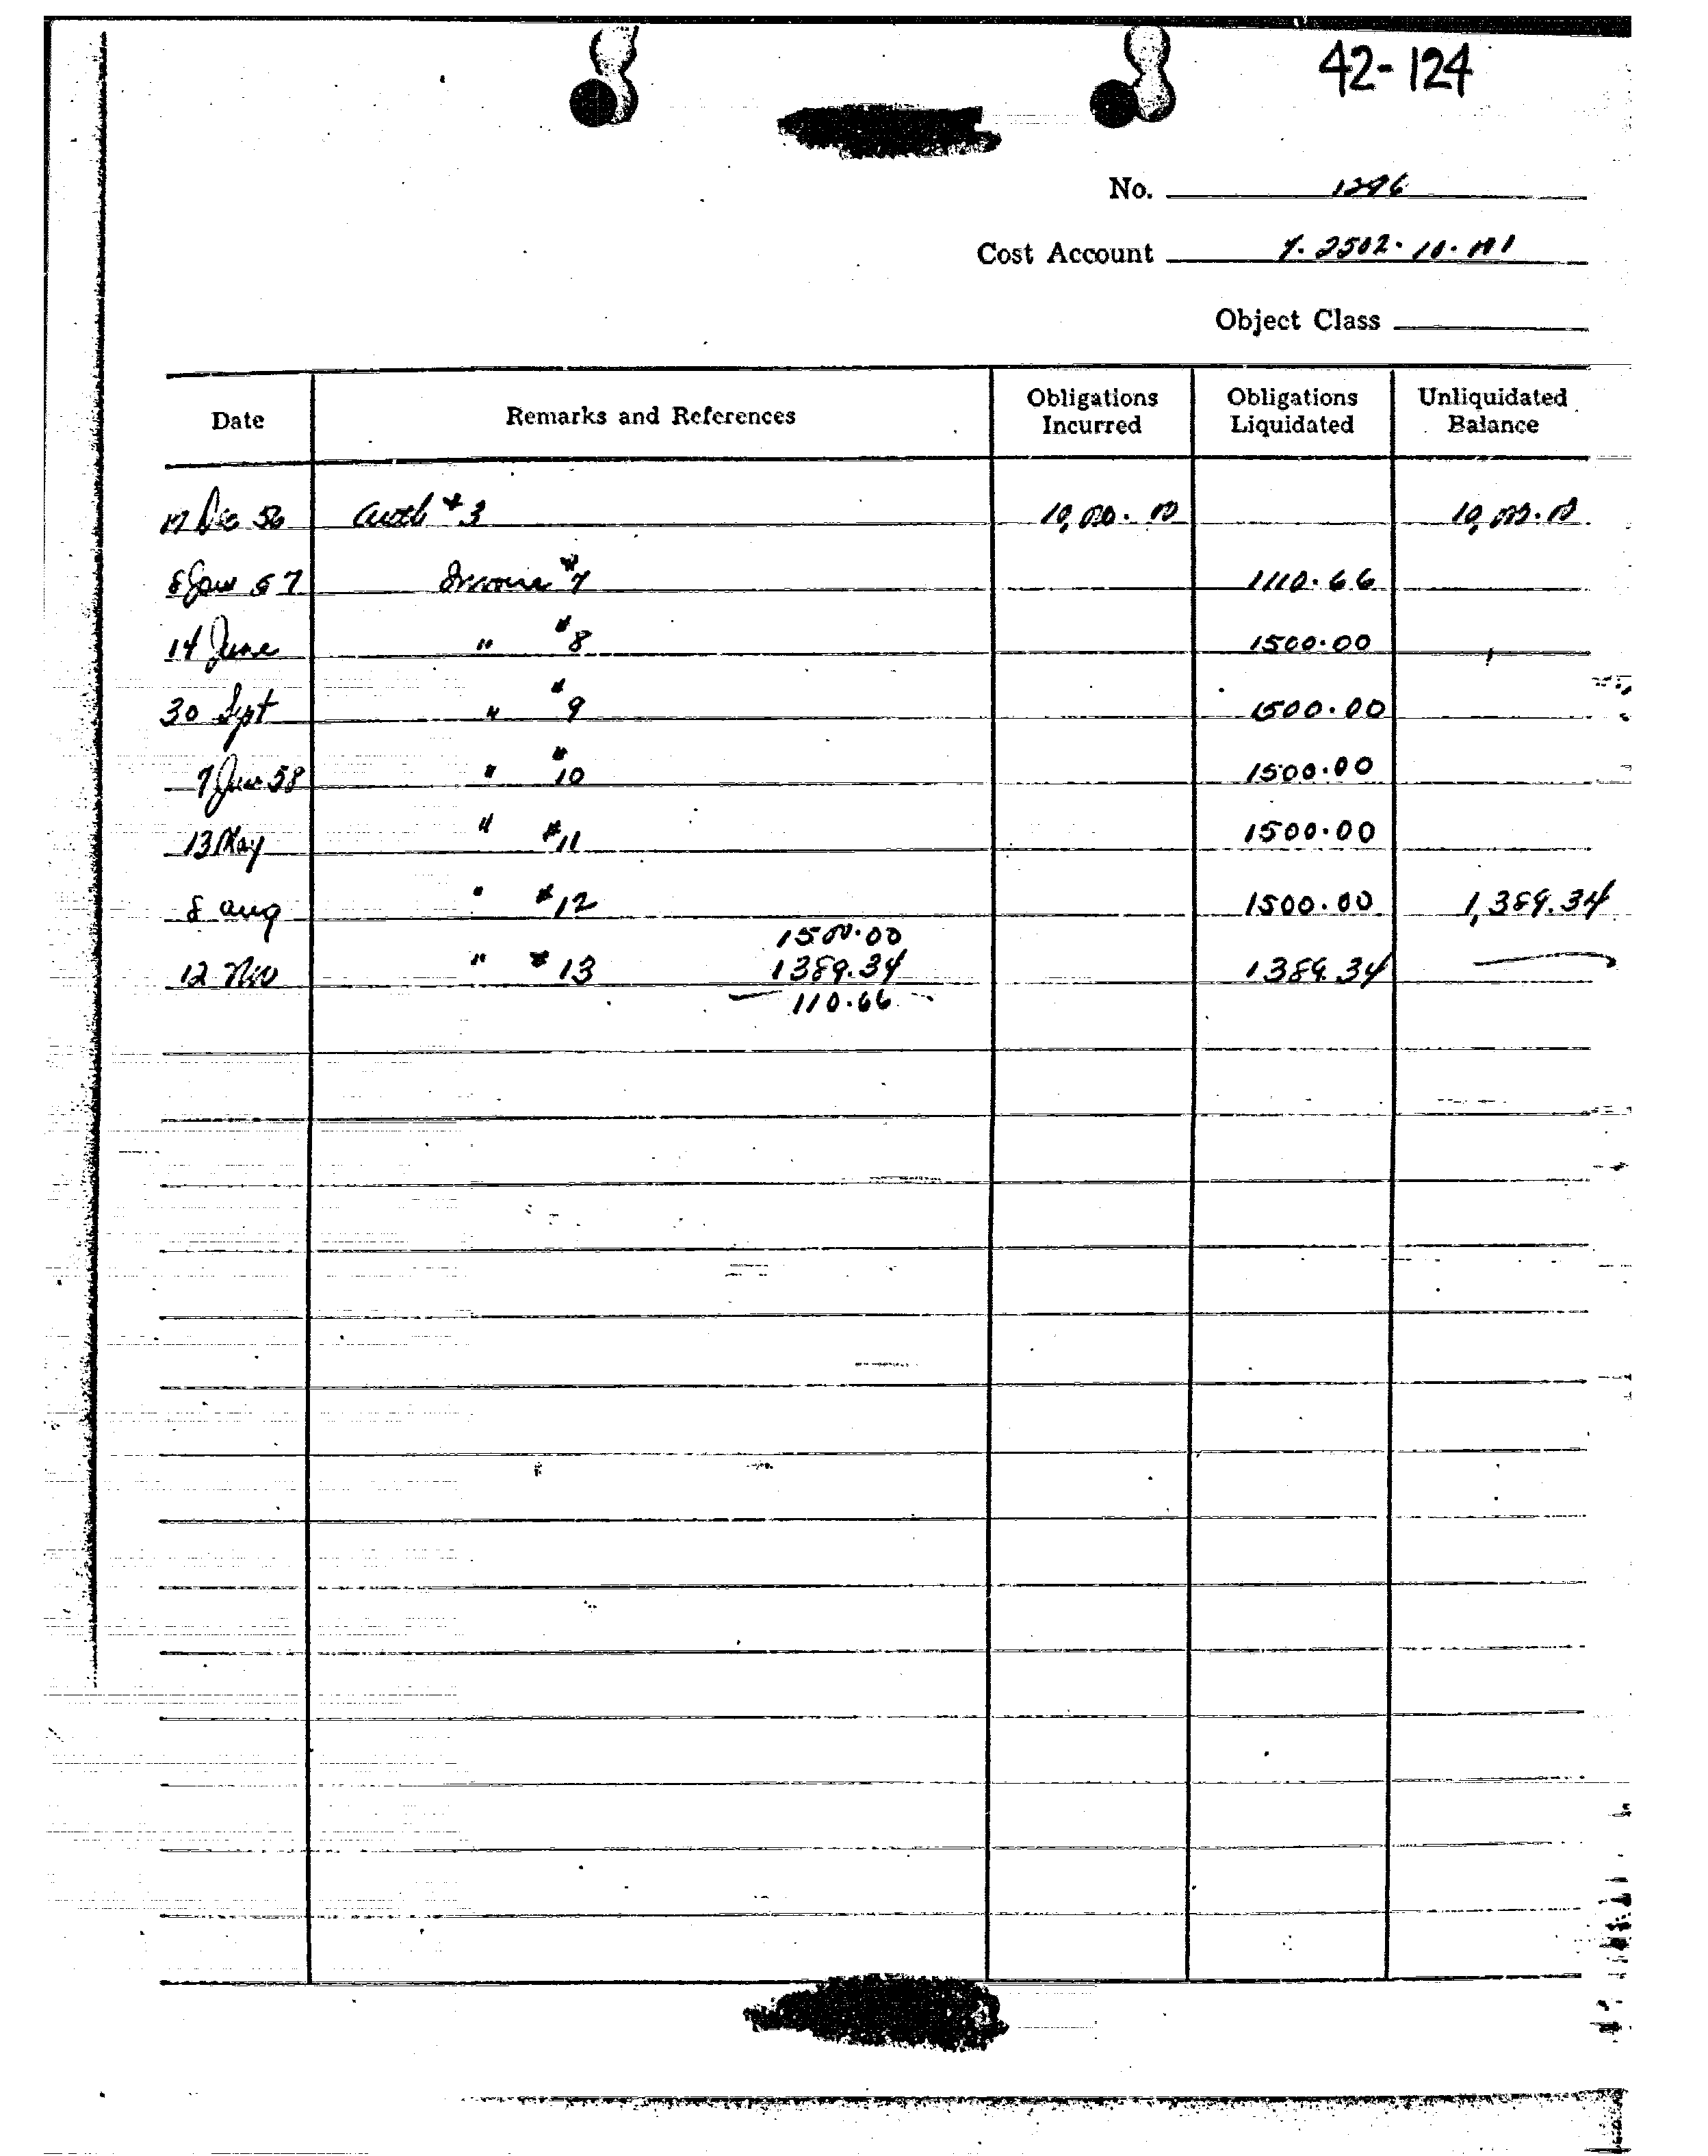 42-124
No. 1296
Cost Account 7-2502-10-001
Object Class
Date Remarks and References Obligations Incurred Obligations Liquidated Unliquidated Balance
17 Dec 56 Auth #3 10,000.00 10,000.00
8 Jan 57 Invoice #7 1110.66
14 June " #8 1500.00
30 Sept " #9 1500.00
7 Jan 58 " #10 1500.00
13 May " #11 1500.00
8 Aug " #12 1500.00 1,389.34
1500.00
12 Nov " #13 1389.34 1389.34
110.66